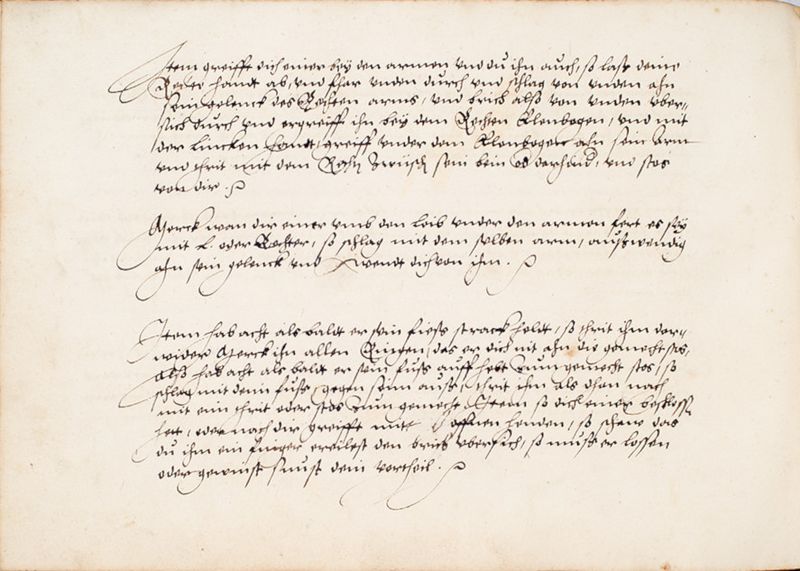 Item greifft dich einer bey den armen vnd du ihn auch, so lass deine
Rechte handt ab, vnd fhar vnden durch vnd schlag von vnden ahn
sein gelenck des Rechten arms, vnd brich alss von vnden vber-
sich durch vnd ergreiff ihn bey dem Rechten Elenbogen, vnd mit
der lincken handt, greiff vnder dem Elenbogen ahn sein arm
vnd schrit mit dem Rechten sein bein vorhandt, vnd stos
von dir.
Merck wan dir einer vmb den leib vnder den armen fert es sey
mit L. oder Rechter, so schlag mit dem selben arm, ausswendig
ahn sein gelenck vnd wendt dich von ihm.
Item hab acht als baldt er sein fiess strack heldt, so schrit ihm der-
wider Merck in allen Ringen, das er dich nit ahn die gemecht stos,
alss hab acht als baldt er sein fuss auff hebt zum gemecht stos, so
schlag mit deim fuss, gegen seim auss, schrit ihm als dhan nach
mit eim schrit oder stos zum gemecht. Item so dich einer beschlossen
hett, oder nach dir greifft mitt offnen henden, so schaw das
du ihm ein finger ereilest den brich vbersich, so muss er lossen
oder gewinst sunst dein vortheil.